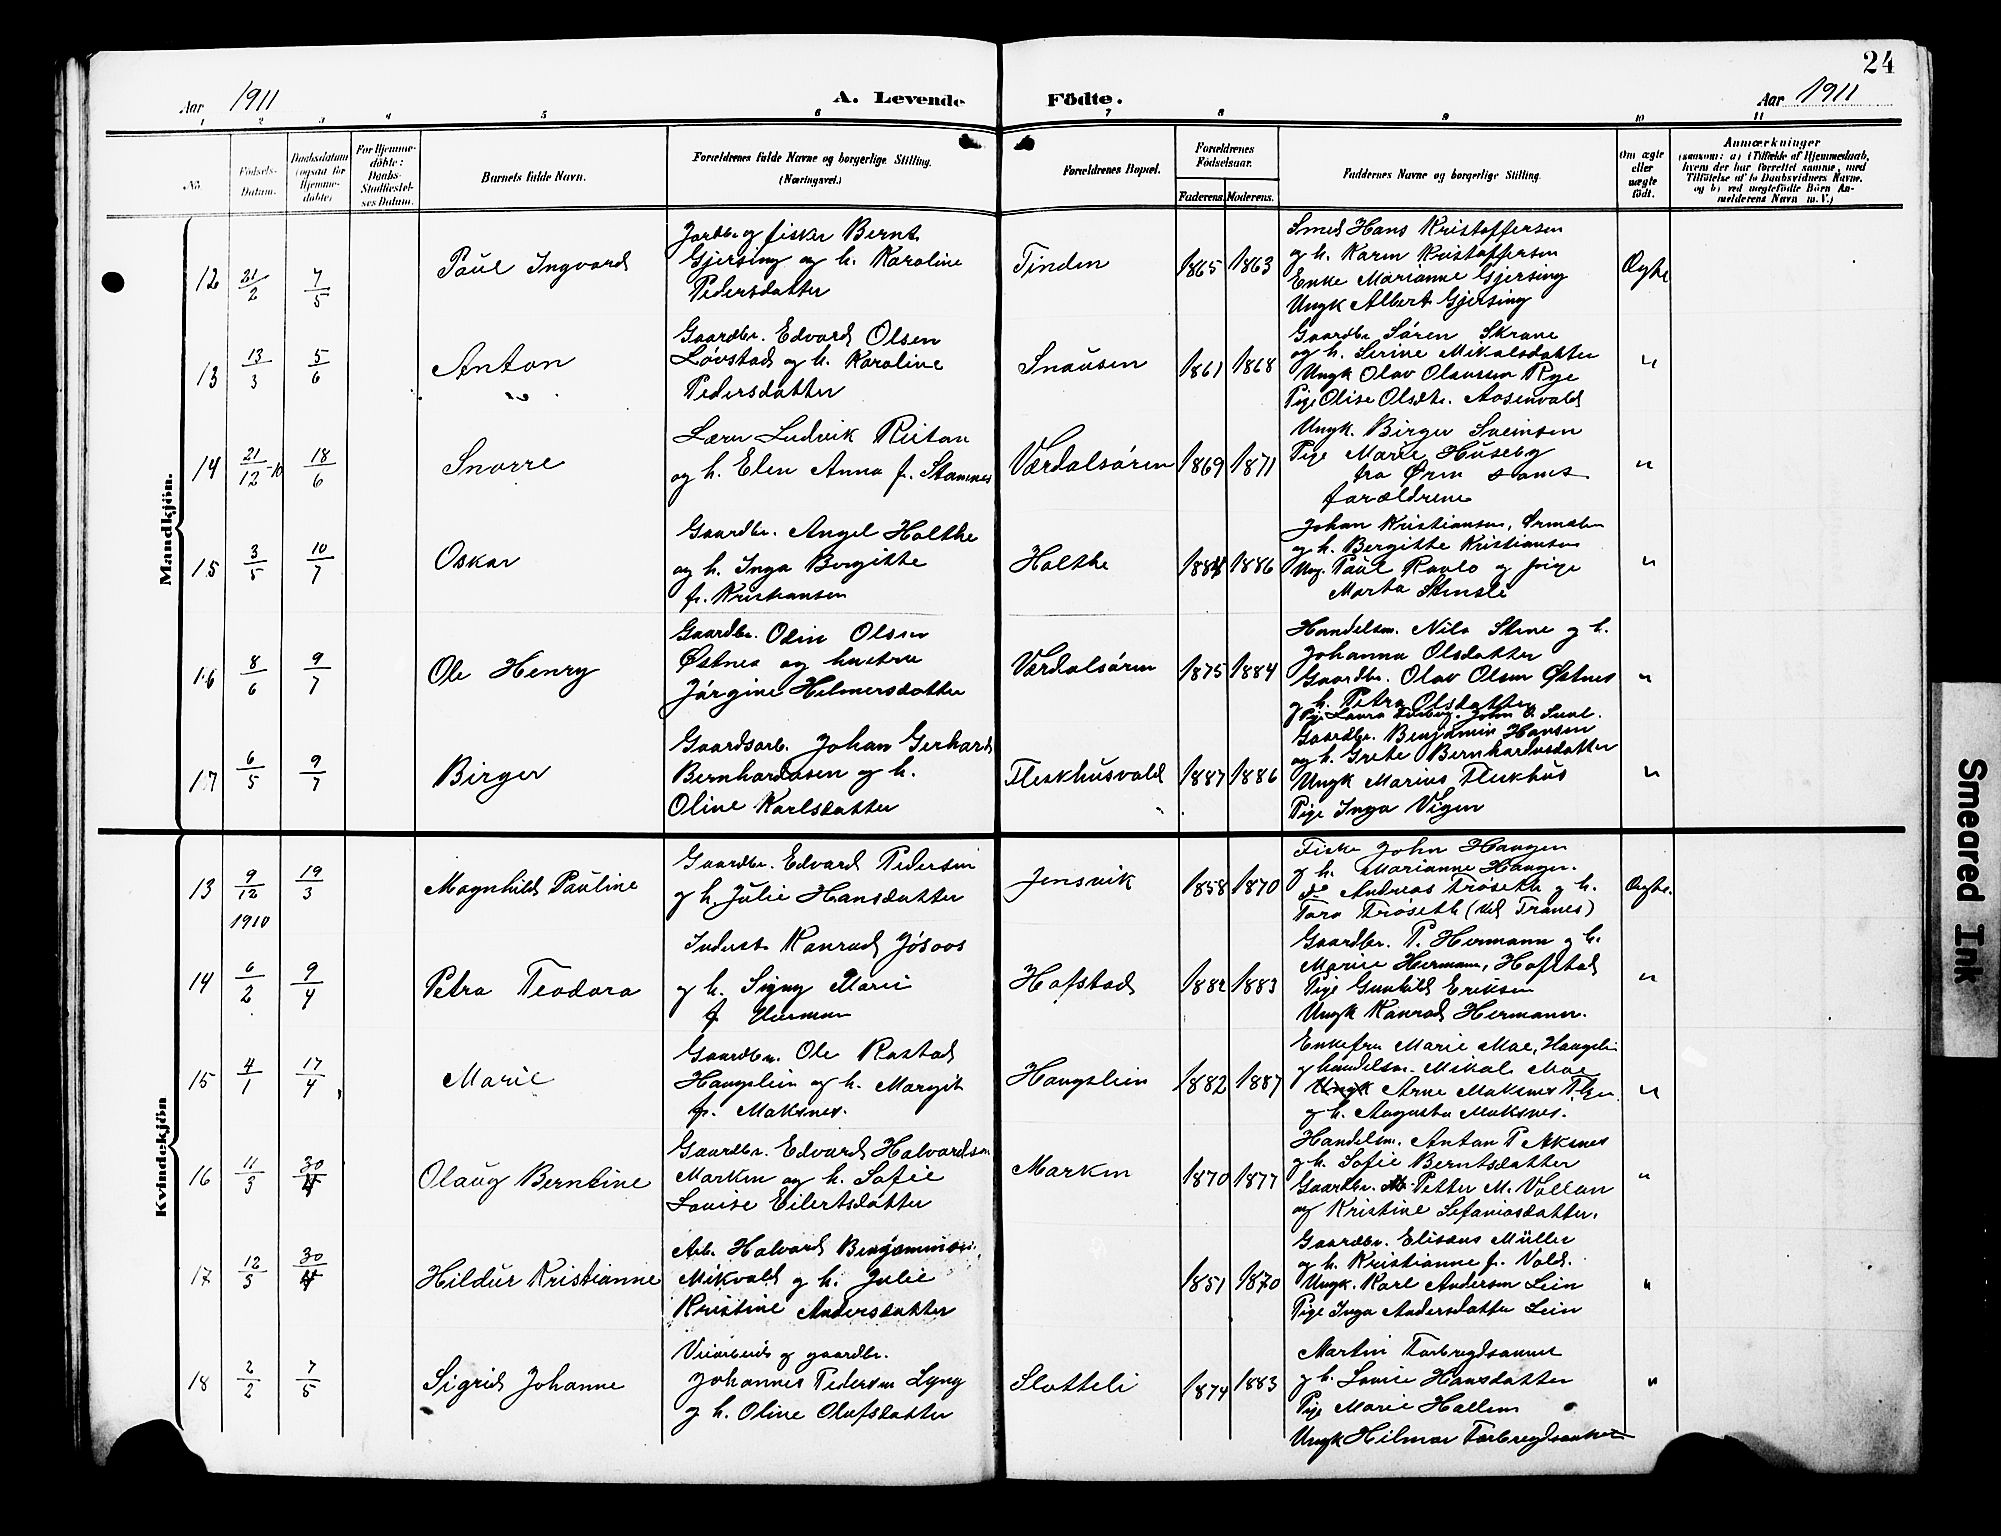 24
Aar 1911 A. Levende Födte. Aar 1911
1 2 3 4 5 6 7 8 9 10 11
No.
Födsels-
Datum.
Daabsdatum
(ogsaa for
Hjemme-
döbte)
For Hjemme-
döbte:
Daabs-
Stadfæstel-
ses Datum.
Barnets fulde Navn.
Forældrenes fulde Navne og borgerlige Stilling.
(Næringsvei.)
Forældrenes Bopæl.
Forældrenes
Födselsaar.
Faderens. Moderens.
Faddernes Navne og borgerlig Stilling.
Om ægte
eller
uægte
födt.
Anmærkninger
(saasom: a) i Tilfælde af Hjemmedaab,
hvem der har forrettet samme, med
Tilföielse af to Daabsvidners Navne.
og b) ved uægtefödte Börn An-
melderens Navn m. V.)
Mandkjön.
12 21/2 7/5
Paul Ingvard
Jordbr og fisker Bernt
Gjersing og h. Karoline
Pedersdatter
Tinden
1865 1863
Smed Hans Kristoffersen
og h. Karen Kristoffersen
Enke Marianne Gjersing
Ungk Albert Gjersing
Ægte
13 13/3 5/6
Anton
Gaardbr. Edvard Olsen
Løvstad og h. Karoline
Pedersdatter
Snausen
1861 1868
Gaardbr Søren Skrane
og h. Serine Mikalsdatter
Ungk Olav Olaussen Rye
Pige Olise Olsdtr. Aasenvald
"
14 21/12-10 18/6
Snorre
Lærer Ludvik Ristan
og h. Elen Anna f. Stamnes
Værdalsøren
1869 1871
Ungk. Birger Sveinsen
Pige Marie Huseby
fra Øren samt
forældrene
"
15 3/5 10/7
Oskar
Gaardbr. Angel Holthe
og h. Inga Bergitte
f. Kristiansen
Holthe
1884 1886
Johan Kristiansen, Ørmelen
og h. Bergitte Kristiansen
Ung. Paul Ravlo og pige
Marta Stensle
"
16 8/6 9/7
Ole Henry
Gaardbr. Odin Olsen
Østnes og hustru
Jørgine Hilmersdatter
Værdalsøren
1875 1884
Handelsm. Nils Stene og h.
Johanna Olsdatter
Gaardbr. Olav Olsen Østnes
og h. Petra Olsdatter
Pige Laura Forberg. John O. Suul.
"
17 6/5 9/7
Birger
Gaardsarb. Johan Gerhard
Bernhardsen og h.
Oline Karlsdatter
Fleskhusvald
1887 1886
Gaardbr. Benjamin Hansen
og h. Grete Bernhardusdatter
Ungk Marius Fleskhus
Pige Inga Vigen
"
Kvindekjön
13 9/12 1910 19/3
Magnhild Pauline
Gaardbr. Edvard Pedersen
og h. Julie Hansdatter
Jensvik
1858 1870
Fisker John Haugen
og h. Marianne Haugen.
do Andreas Trøseth og h.
Tora Trøseth (ved Tranes)
Ægte.
14 6/2 9/4
Petra Teodora
Inderst Konrad Jøsaas
og h. Signy Marie
f Herman
Hofstad
1882 1883
Gaardbr. P. Hermann og h.
Marie Hermann, Hofstad
Pige Gunhild Eriksen
Ungk Konrad Hermann.
"
15 4/1 17/4
Marie
Gaardbr. Ole Rostad
Haugslein og h. Margit
f. Maksnes.
Haugslein
1882 1887
Enkefru Marie Moe, Haugslein
og handelsm. Mikal Moe
Ungk Arne Maksnes
og h. Augusta Maksnes.
"
16 11/3 30/4
Olaug Berntine
Gaardbr. Edvard Halvardsen
Marken og h. Sofie
Louise Eilertsdatter
Marken
1870 1877
Handelsm. Anton P Aksnes
og h. Sofie Berntsdatter
Gaardbr. Petter M. Vollan
og Kristine Sefaniasdatter.
"
17 12/3 30/4
Hildur Kristianne
Arb. Halvard Benjaminsen
Mikvold og h. Julie
Kristine Andersdatter
1851 1870
Gaardbr. Elisæus Müller
og h. Kristianne f. Vold.
Ungk. Karl Andersen Lein
Pige Inga Andersdatter Lein
"
18 2/2 7/5
Sigrid Johanne
Veiarbeids og gaardbr.
Johannes Pedersen Lyng
og h. Oline Olufsdatter
Slotteli
1874 1883
Martin Forbregdsaunet
og h. Lovise Hansdatter
Pige Marie Hallem
Ungk Hilmar Forbregdsaunet
"
Smeared Ink